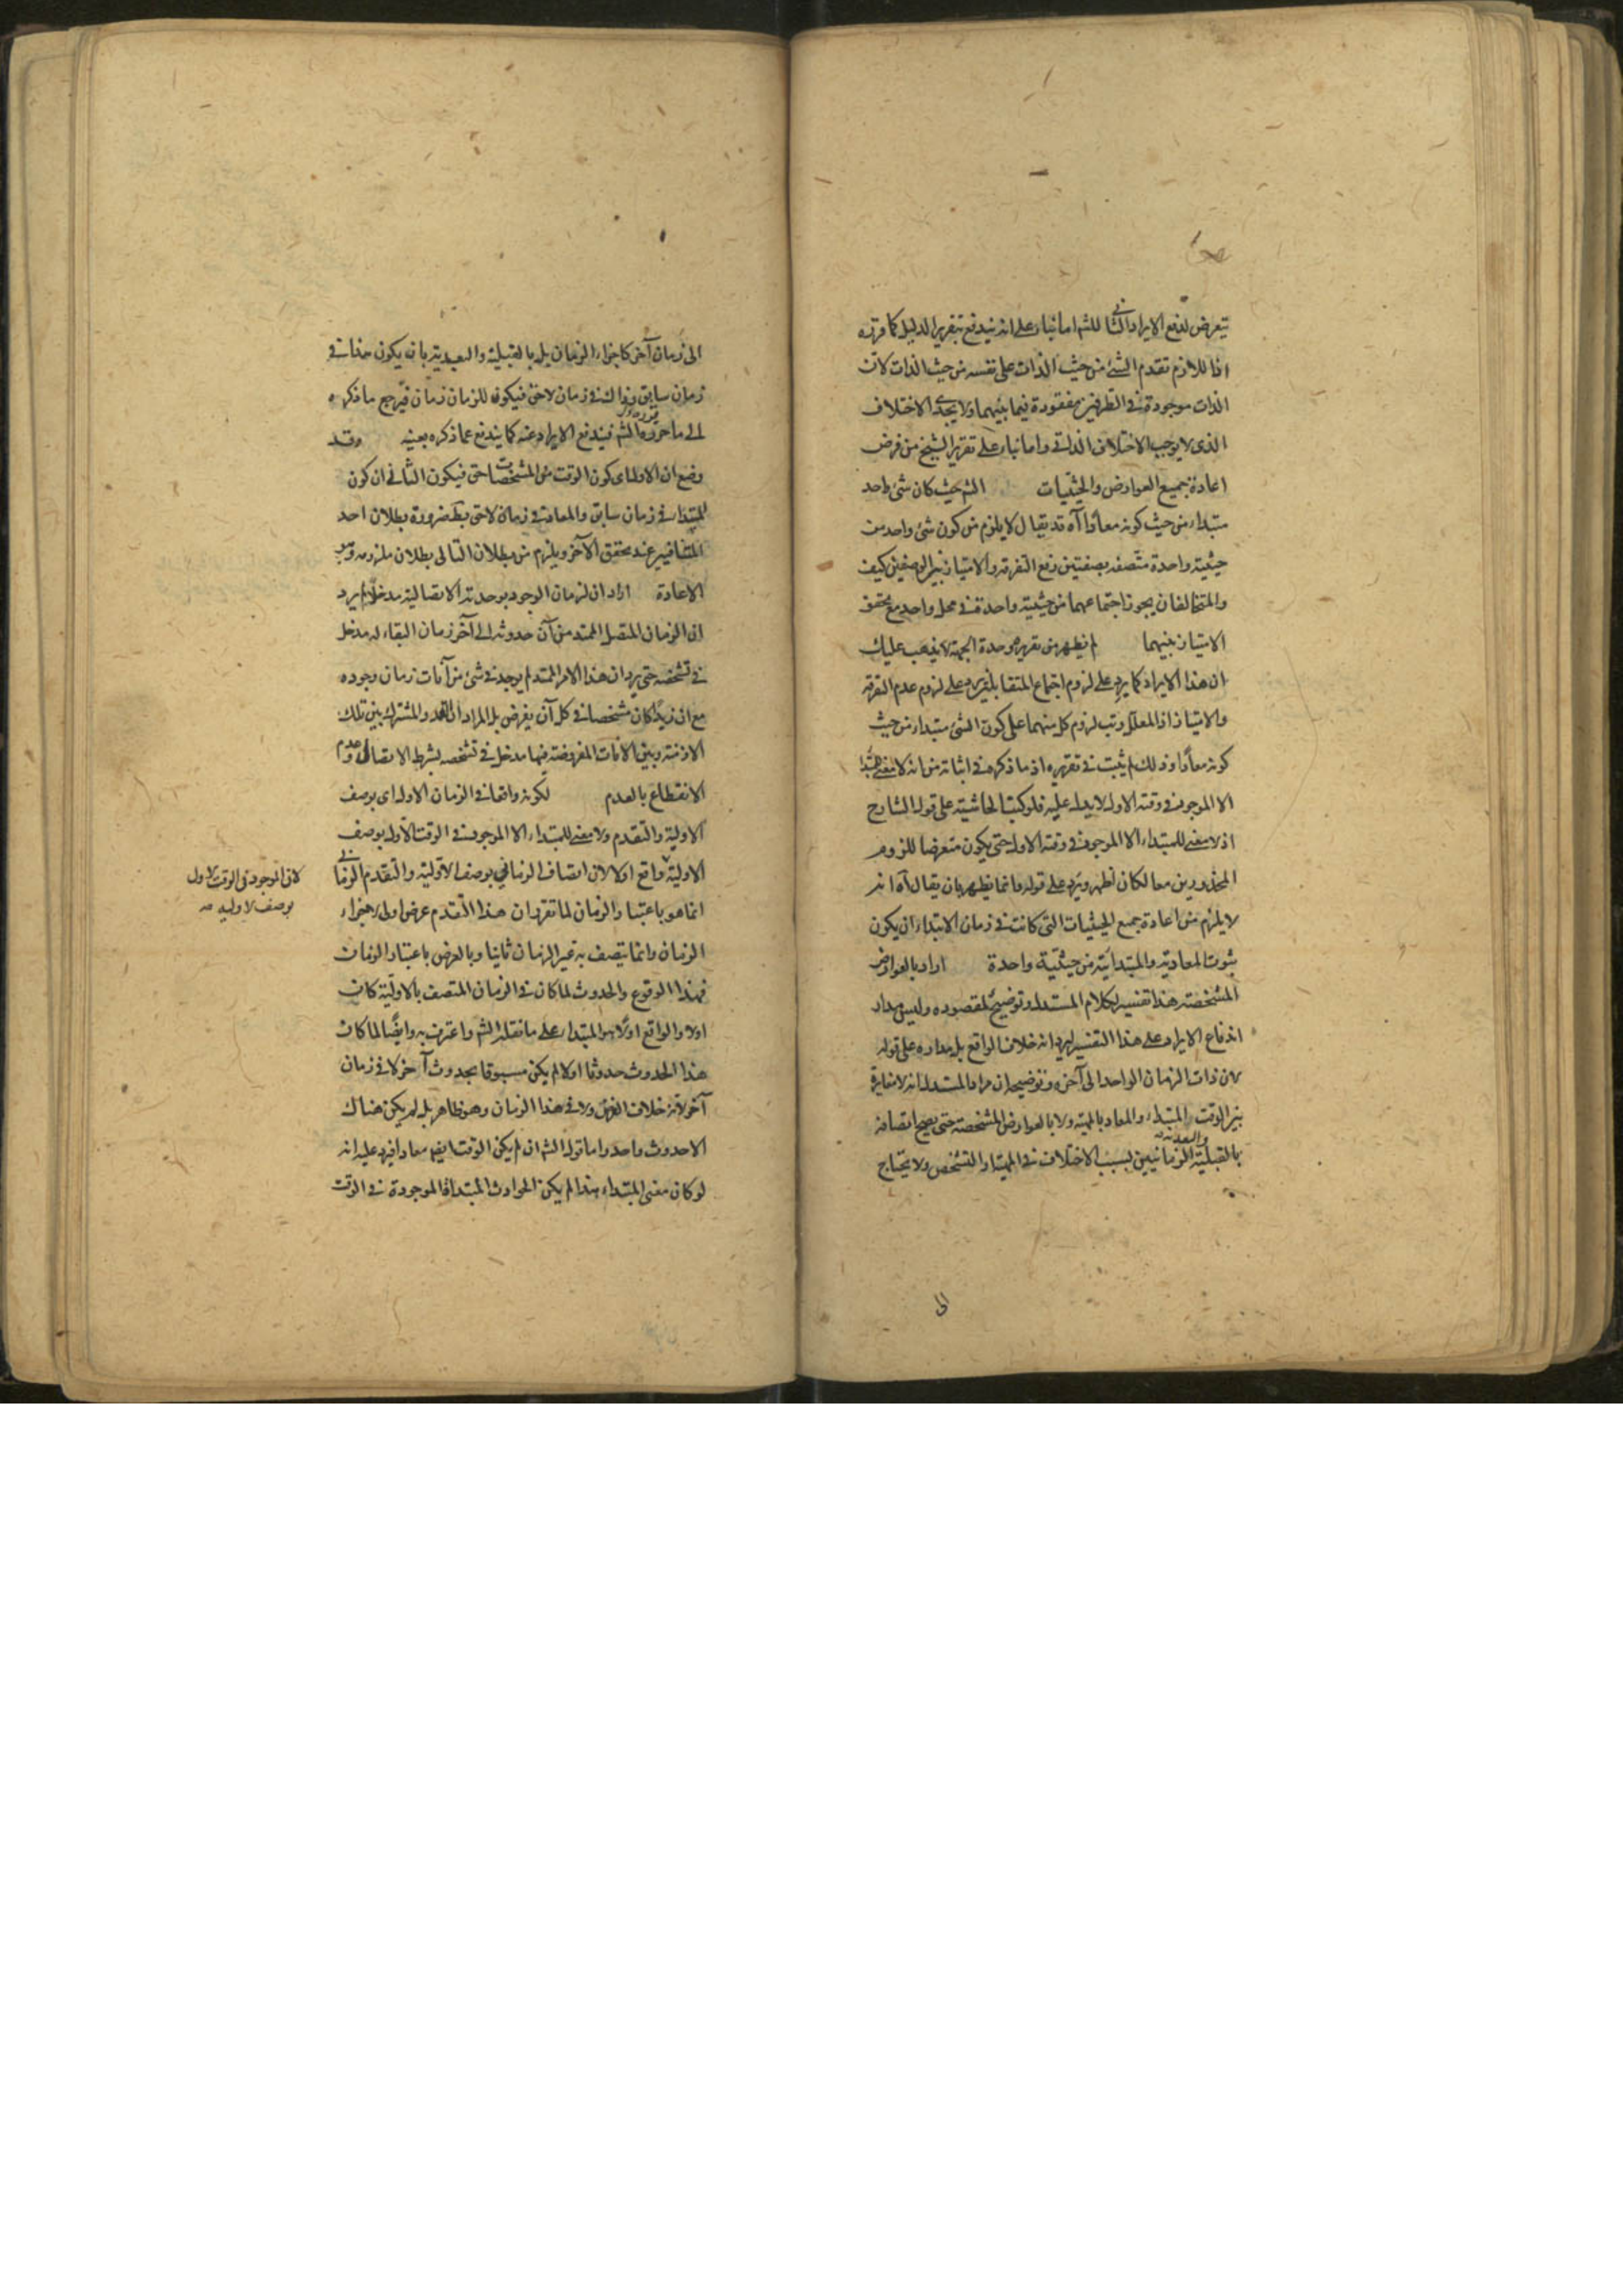 يتعرض لدفع الايراد الثاني للشم اما بناء على انه يندفع بتقرير الدليل كما قرره
اذ اللازم تقدم الشئ من حيث الذات على نفسه من حيث الذات لان
الذات موجودة في الطرفين مفقودة فيما بينهما ولا يجدي الاختلاف
الذي لا يوجب الاختلاف الذاتي واما بناء على تقرير الشيخ من فرض
اعادة جميع العوارض والحيثيات الشم حيث كان شئ واحد
مبتداء من حيث كونه معادا آه قد يقال لا يلزم من كون شئ واحد من
حيثية واحدة متصفه بصفتين رفع التفرقه والامتياز بين الوصفين كيف
والمتخالفان يجوز اجتماعهما من حيثية واحدة في محل واحد مع تحقق
الامتياز بينهما لم يظهر من تقريره وحدة الجهة لا يذهب عليك
ان هذا الايراد كما يرد على لزوم اجتماع المتقابلين يرد على لزوم عدم التفرقه
والامتياز اذ المعلل رتب لزوم كل منهما على كون الشئ مبتداء من حيث
كونه معادا وذلك لم يثبت في تقريره اذ ما ذكره في اثباته من انه لا معنى للمبتدا
الا الموجود في وقته الاول لا يدل عليه فلو كتب الحاشية على قول الشارح
اذ لا معنى للمبتداء الا الموجود في وقته الاول حتى يكون متعرضا للزوم
المحذورين معا لكان اظهر ويرد على قوله وانما يظهر بان يقال آه انه
لا يلزم من اعادة جميع الحيثيات التى كانت في زمان الابتداء ان يكون
ثبوت المعادية والمبتدائية من حيثية واحدة اراد بالعوارض
المشخصة هذا تفسير لكلام المستدل وتوضيح لمقصوده وليس مدار
اندفاع الايراد على هذا التفسير ليرد انه خلاف الواقع بل مداره على قوله
لان ذات الزمان الواحد الى آخره وتوضيحه ان مراد المستدل انه لا مغايرة
بين الوقت المبتداء والمعاد بالمهية ولا بالعوارض المشخصة حتى يصح اتصافه
بالقبلية والبعدية الزمانيين بسبب الاختلاف في المهية او التشخص ولا يحتاج
الى
الى زمان آخر كاجزاء الزمان بل بالقبلية والبعدية بان يكون هذا في
زمان سابق وذاك في زمان لاحق فيكون للزمان زمان فيرجع ما ذكره
الى ما حرره الشم فيندفع الايراد عنه كما يندفع عما ذكره بعينه وقد
وضع ان الاول اى كون الوقت من المشخصات حتى فيكون الثاني ان كون
المبتداء في زمان سابق والمعاد في زمان لاحق بط ضرورة بطلان احد
المتنافيين عند تحقق الآخر ويلزم من بطلان التالى بطلان ملزومه وهو
الاعادة اراد ان لزمان الوجود بوحدته الاتصالية مدخلا لم يرد
ان الزمان المتصل الممتد من آن حدوثه الى آخر زمان البقاء له مدخل
في تشخصه حتى يرد ان هذا الامر الممتد لم يوجد في شئ من آنات زمان وجوده
مع ان زيدا كان مشخصا في كل آن يفرض بل المراد ان القدر المشترك بين تلك
الازمنة وبين الانات المفروضة فيها مدخل في تشخصه بشرط الاتصال وعدم
الانقطاع بالعدم لكونه واقعا في الزمان الاول اى بوصف
الاولية والتقدم ولا معنى للمبتداء الا الموجود في الوقت الاول بوصف
الاولية واقع اولا لان اتصاف الزماني بوصف الاولية والتقدم الزماني
انما هو باعتبار الزمان لما تقرر ان هذا التقدم عرض اولى لاجزاء
الزمان وانما يتصف به غير الزمان ثانيا وبالعرض باعتبار الزمان
فهذا الوقوع والحدوث لما كان في الزمان المتصف بالاولية كان
اولا والواقع اولا هو المبتداء على ما نقله الشم واعترف به وايضا لما كان
هذا الحدوث حدوثا اولا لم يكن مسبوقا بحدوث آخر لا في زمان
آخر لانه خلاف الفرض ولا في هذا الزمان وهو ظاهر بل لم يكن هناك
الا حدوث واحد واما قول الشم ان لم يكن الوقت ايضا معادا فيرد عليه انه
لو كان معنى المبتداء هذا لم يكن الحوادث المبتدأة الموجودة في الوقت
لان الموجود في الوقت الاول
بوصف الاولية صه